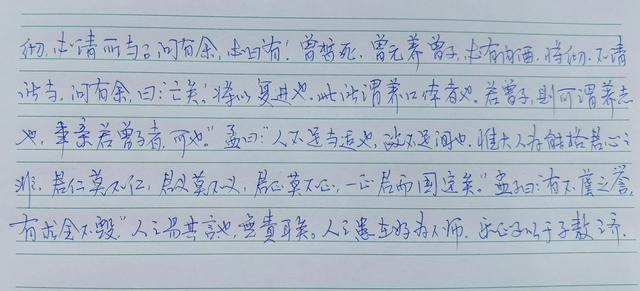 彻,必请所与;问有余,必曰有!曾皙死,曾元养曾子,必有酒肉,将彻,不请
所与,问有余,曰:亡矣,将以复进也,此所谓养口体者也。若曾子,则可谓养志
也,事亲若曾子者,可也。”孟曰:人不足与适也,政不足间也,惟大人为能格君心之
非,君仁莫不仁,君义莫不义,君正莫不正,一正君而国定矣。”孟子曰:有不虞之誉,
有求全之毁”人之易其言也,无责耳矣。人之患在好为人师。乐正子从于子敖之齐.